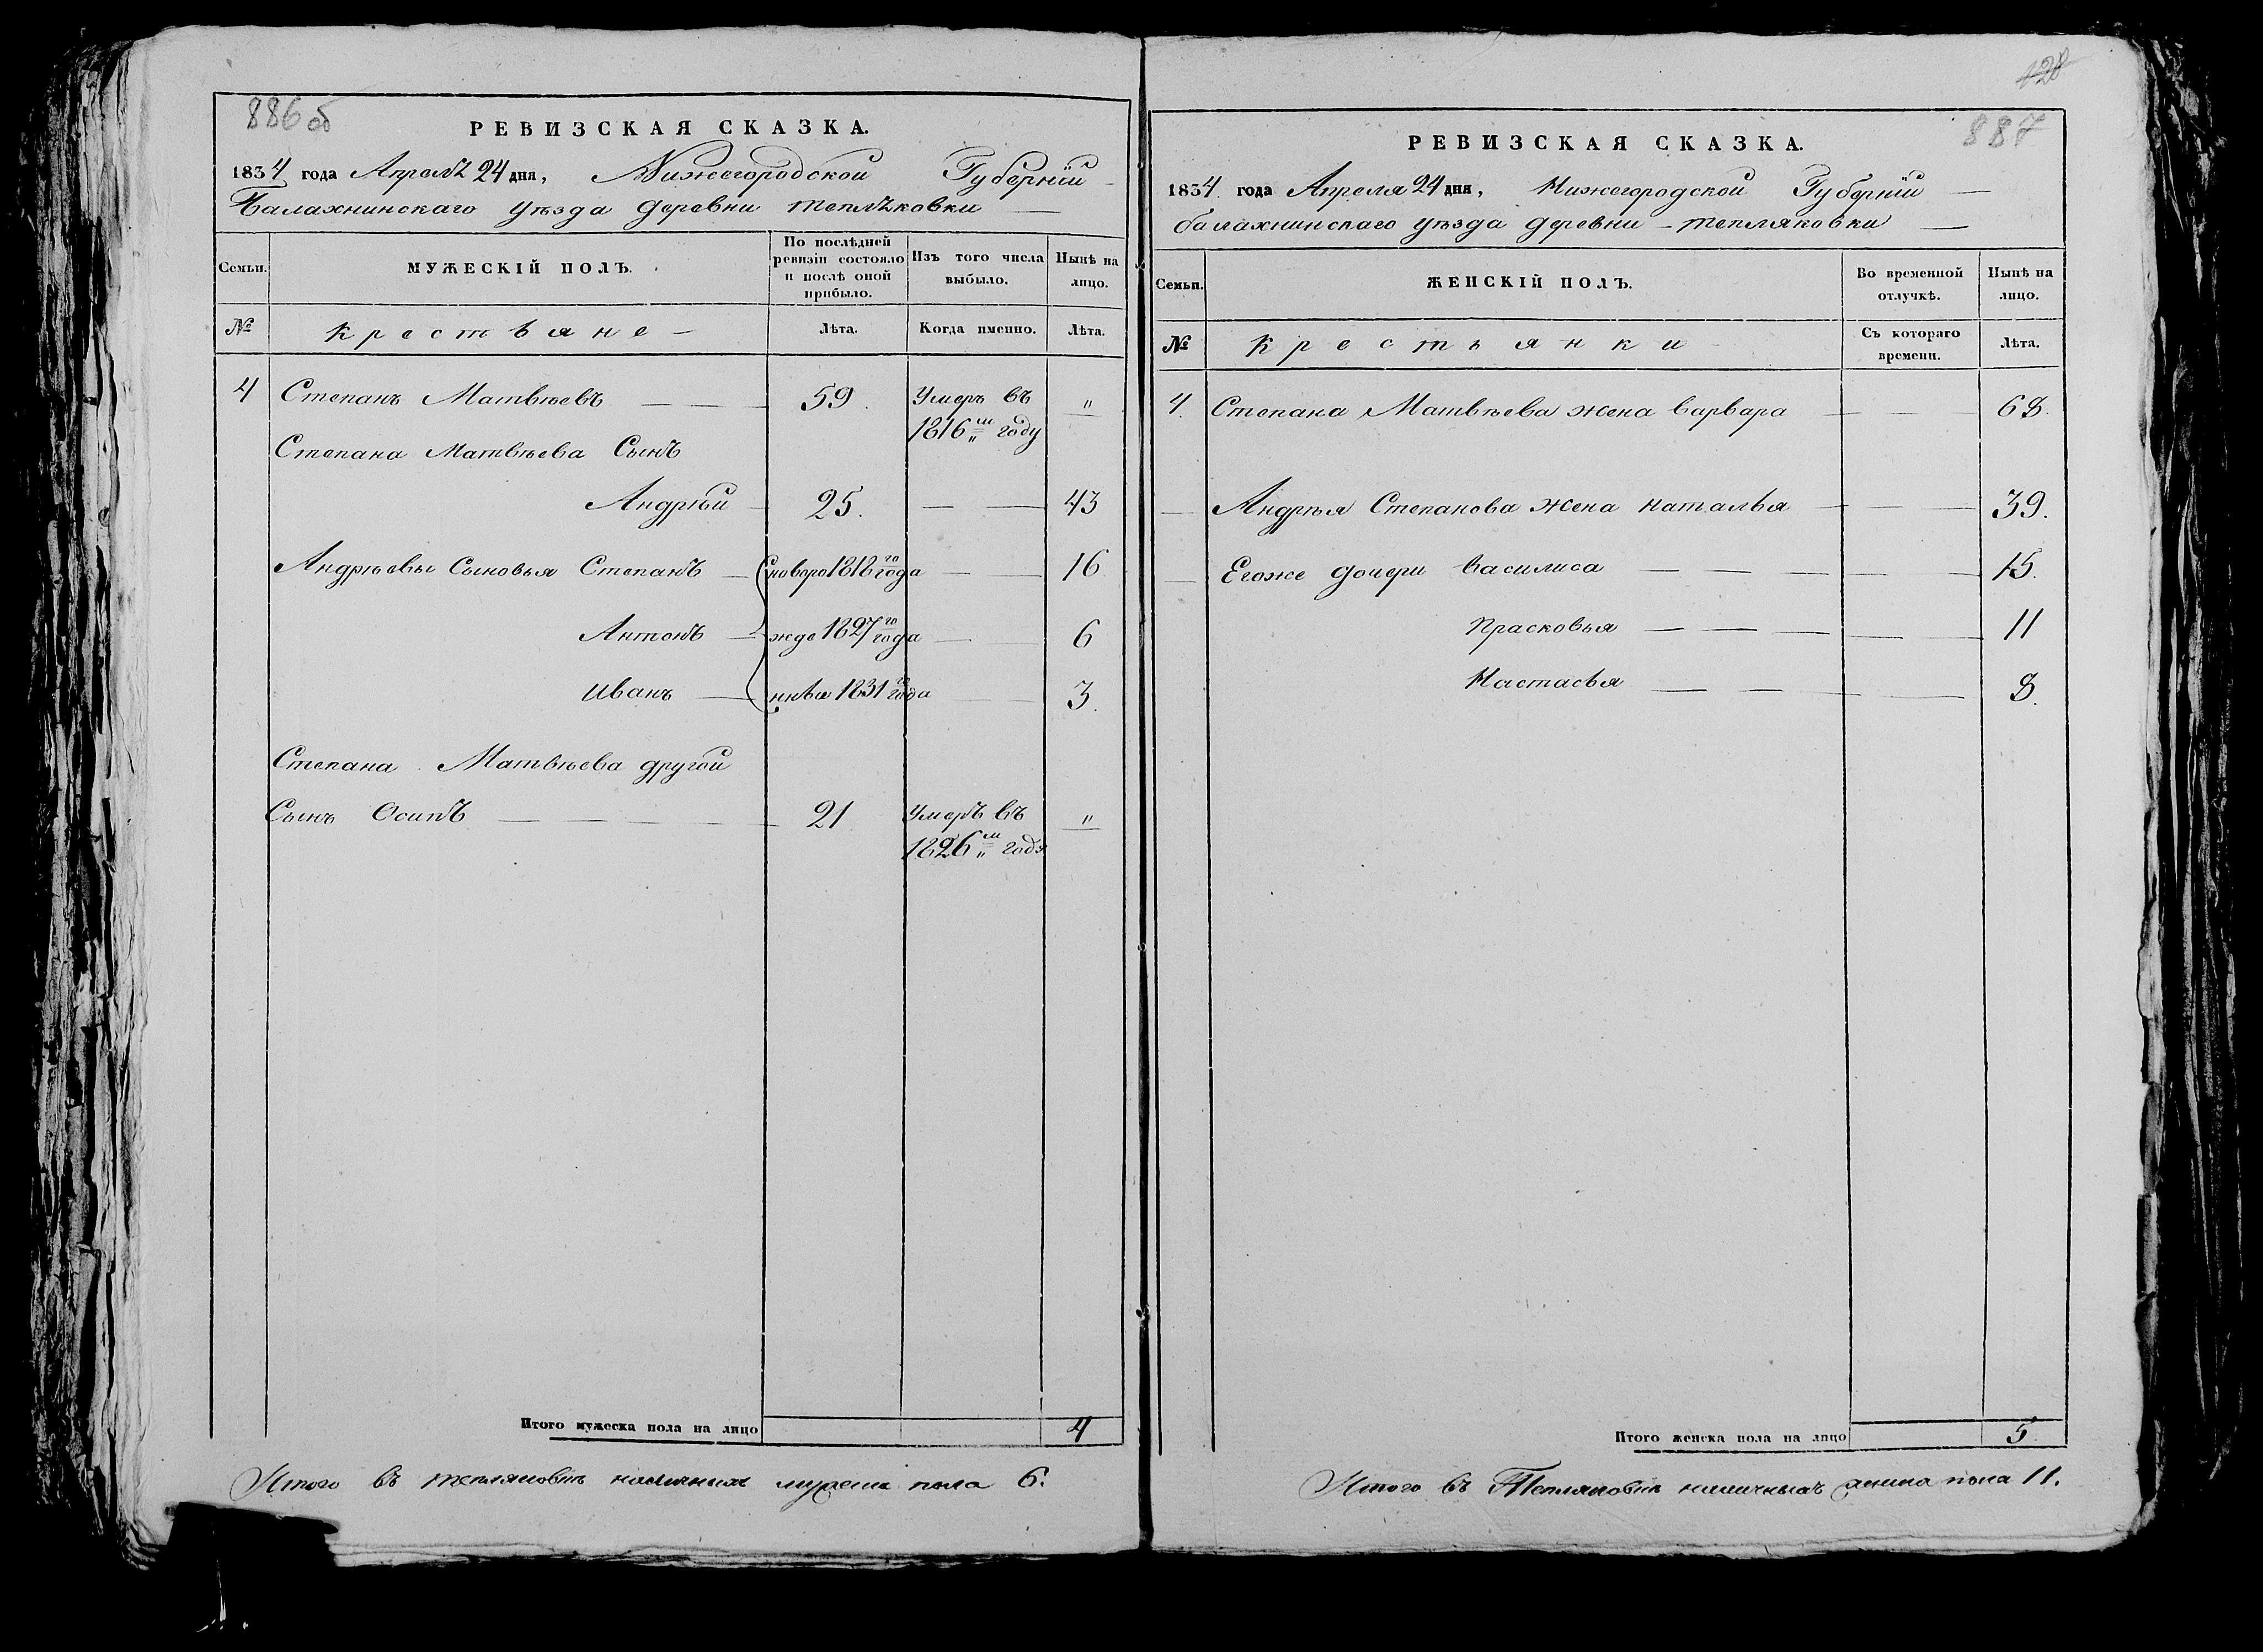 886 об
РЕВИЗСКАЯ СКАЗКА.
1834 года Апрель 24 дня, Нижегородской Губернїи
Балахнинскаго уѣзда деревни теплѣковки
Семьи.
МУЖЕСКІЙ ПОЛЪ.
По послѣдней ревизіи состояло и послѣ оной прибыло.
Изъ того числа выбыло.
Нынѣ на лицо.
№
Крестьяне
Лѣта.
Когда именно.
Лѣта.
4 Степанъ Матвѣевъ 59. Умеръ въ "
1816м году
Степана Матвѣева Сынъ
Андрѣй 25. 43
Андрѣевы Сыновья Степанъ 1818го года 16
Антонъ 1827го года 6
Иванъ 1831го года 3.
Степана Матвѣева другой
Сынъ Осипъ 21 Умеръ въ "
1826м году
Итого мужеска пола на лицо 4
Итого въ тепляковкѣ наличныхъ мужеска пола 6.
128
887
РЕВИЗСКАЯ СКАЗКА.
1834 года Апреля 24 дня, Нижегородской Губернїи
балахнинскаго уѣзда деревни тепляковки
Семьи.
ЖЕНСКІЙ ПОЛЪ.
Во временной отлучкѣ.
Нынѣ на лицо.
№
Крестьянки
Съ котораго времени.
Лѣта.
4. Степана Матвѣева жена варвара 68.
Андрѣя Степанова жена наталья 39.
Егоже дочери василиса 15.
прасковья 11
Настасья 8.
Итого женска пола на лицо 5
Итого въ Тепляковкѣ наличныхъ женска пола 11.